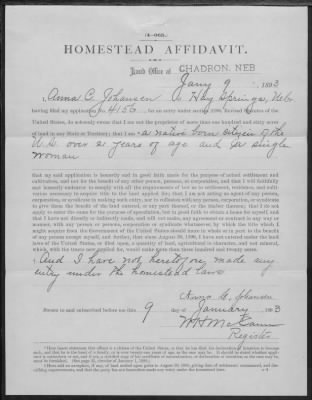 (4-063.)
HOMESTEAD AFFIDAVIT.
Land Office at CHADRON, NEB
Jany 9, 1893
I, Anna C. Johansen of Hay Springs, Neb
having filed my application No. 4156, for an entry under section 2289, Revised Statutes of the
United States, do solemnly swear that I am not the proprietor of more than one hundred and sixty acres
of land in any State or Territory; that I am a native born citizen of the
U.S. over 21 years of age and a single
woman
that my said application is honestly and in good faith made for the purpose of actual settlement and
cultivation, and not for the benefit of any other person, persons, or corporation, and that I will faithfully
and honestly endeavor to comply with all the requirements of law as to settlement, residence, and culti-
vation necessary to acquire title to the land applied for; that I am not acting as agent of any person,
corporation, or syndicate in making such entry, nor in collusion with any person, corporation, or syndicate
to give them the benefit of the land entered, or any part thereof, or the timber thereon; that I do not
apply to enter the same for the purpose of speculation, but in good faith to obtain a home for myself, and
that I have not directly or indirectly made, and will not make, any agreement or contract in any way or
manner, with any person or persons, corporation or syndicate whatsoever, by which the title which I
might acquire from the Government of the United States should inure in whole or in part to the benefit
of any person except myself, and further, that since August 30, 1890, I have not entered under the land
laws of the United States, or filed upon, a quantity of land, agricultural in character, and not mineral,
which, with the tracts now applied for, would make more than three hundred and twenty acres.
And I have not heretofore made any
entry under the homestead laws
Anna C. Johansen
Sworn to and subscribed before me this 9 day of January 1893
Register